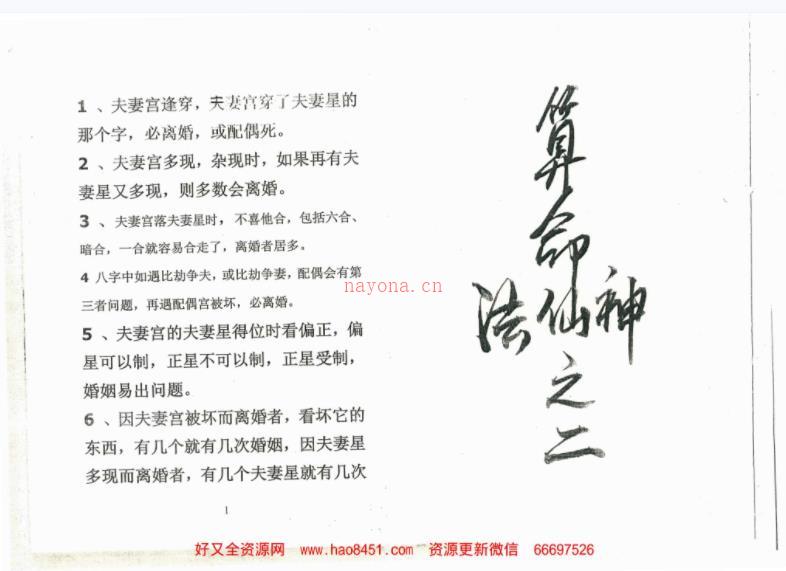 1 、夫妻宫逢穿，夫妻宫穿了夫妻星的
那个字，必离婚，或配偶死。
2 、夫妻宫多现，杂现时，如果再有夫
妻星又多现，则多数会离婚。
3 、夫妻宫落夫妻星时，不喜他合，包括六合、
暗合，一合就容易合走了，离婚者居多。
4 八字中如遇比劫争夫，或比劫争妻，配偶会有第
三者问题，再遇配偶宫被坏，必离婚。
5 、夫妻宫的夫妻星得位时看偏正，偏
星可以制，正星不可以制，正星受制，
婚姻易出问题。
6 、因夫妻宫被坏而离婚者，看坏它的
东西，有几个就有几次婚姻，因夫妻星
多现而离婚者，有几个夫妻星就有几次
1
算命仙之二
神
法
nayona.cn
好又全资源网 www.hao8451.com 资源更新微信 66697526